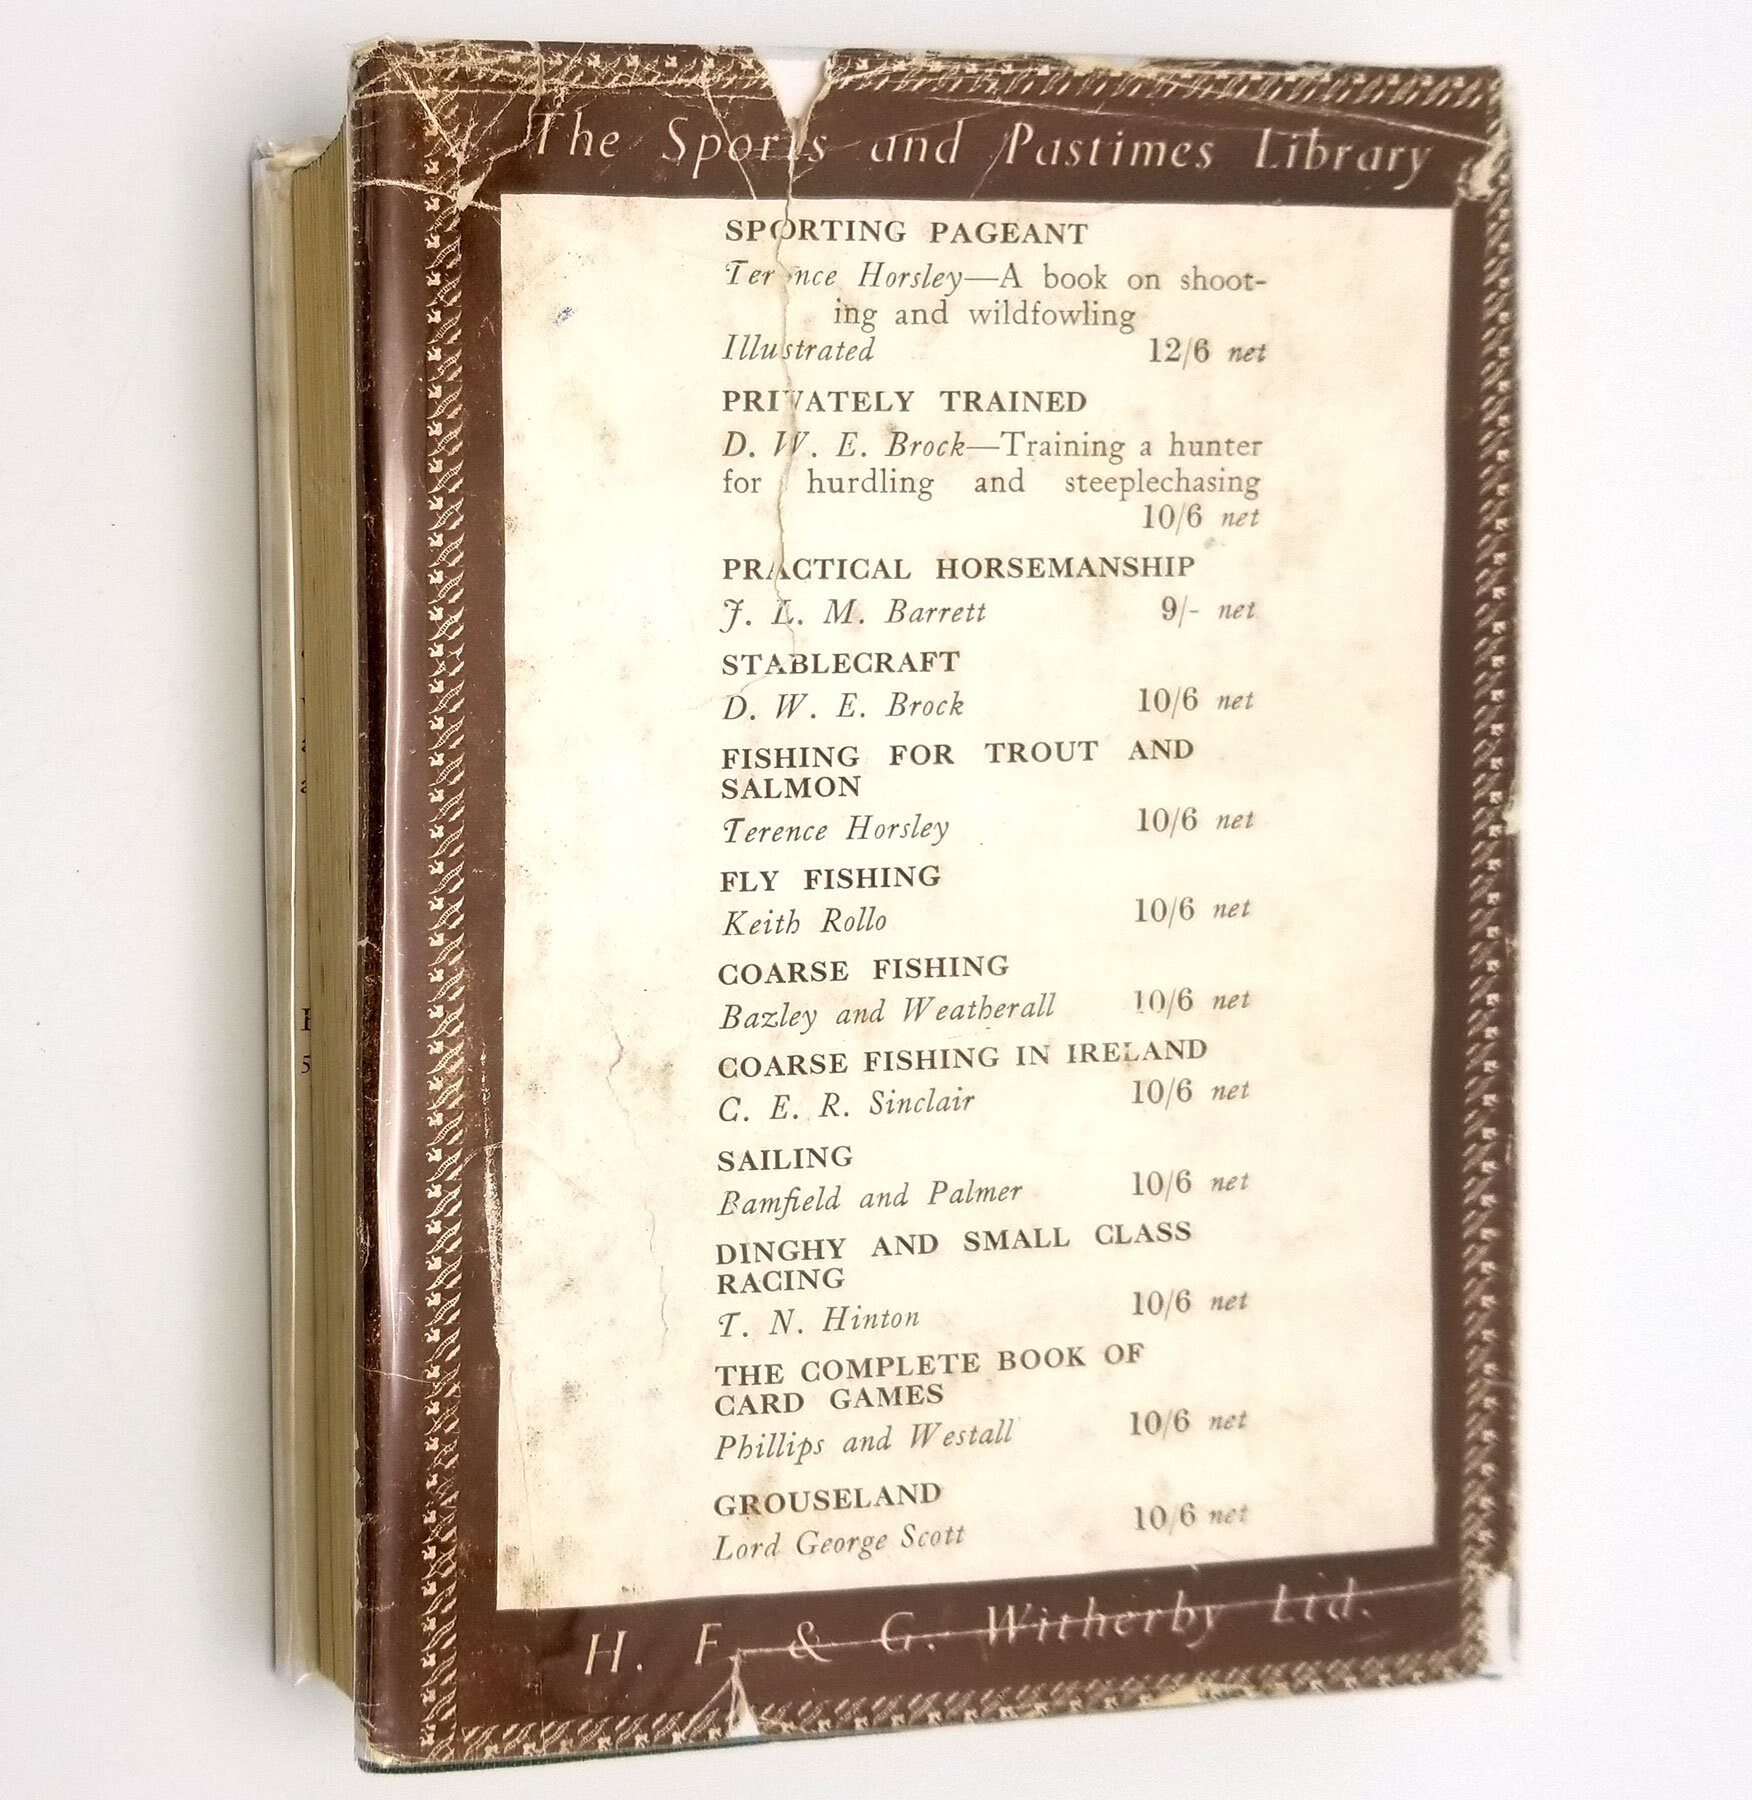 The Sports and Pastimes Library
SPORTING PAGEANT
Terence Horsley—A book on shoot-
ing and wildfowling
Illustrated 12/6 net
PRIVATELY TRAINED
D. W. E. Brock—Training a hunter
for hurdling and steeplechasing
10/6 net
PRACTICAL HORSEMANSHIP
J. L. M. Barrett 9/- net
STABLECRAFT
D. W. E. Brock 10/6 net
FISHING FOR TROUT AND
SALMON
Terence Horsley 10/6 net
FLY FISHING
Keith Rollo 10/6 net
COARSE FISHING
Bazley and Weatherall 10/6 net
COARSE FISHING IN IRELAND
C. E. R. Sinclair 10/6 net
SAILING
Bamfield and Palmer 10/6 net
DINGHY AND SMALL CLASS
RACING
T. N. Hinton 10/6 net
THE COMPLETE BOOK OF
CARD GAMES
Phillips and Westall 10/6 net
GROUSELAND
Lord George Scott 10/6 net
H. F. & G. Witherby Ltd.